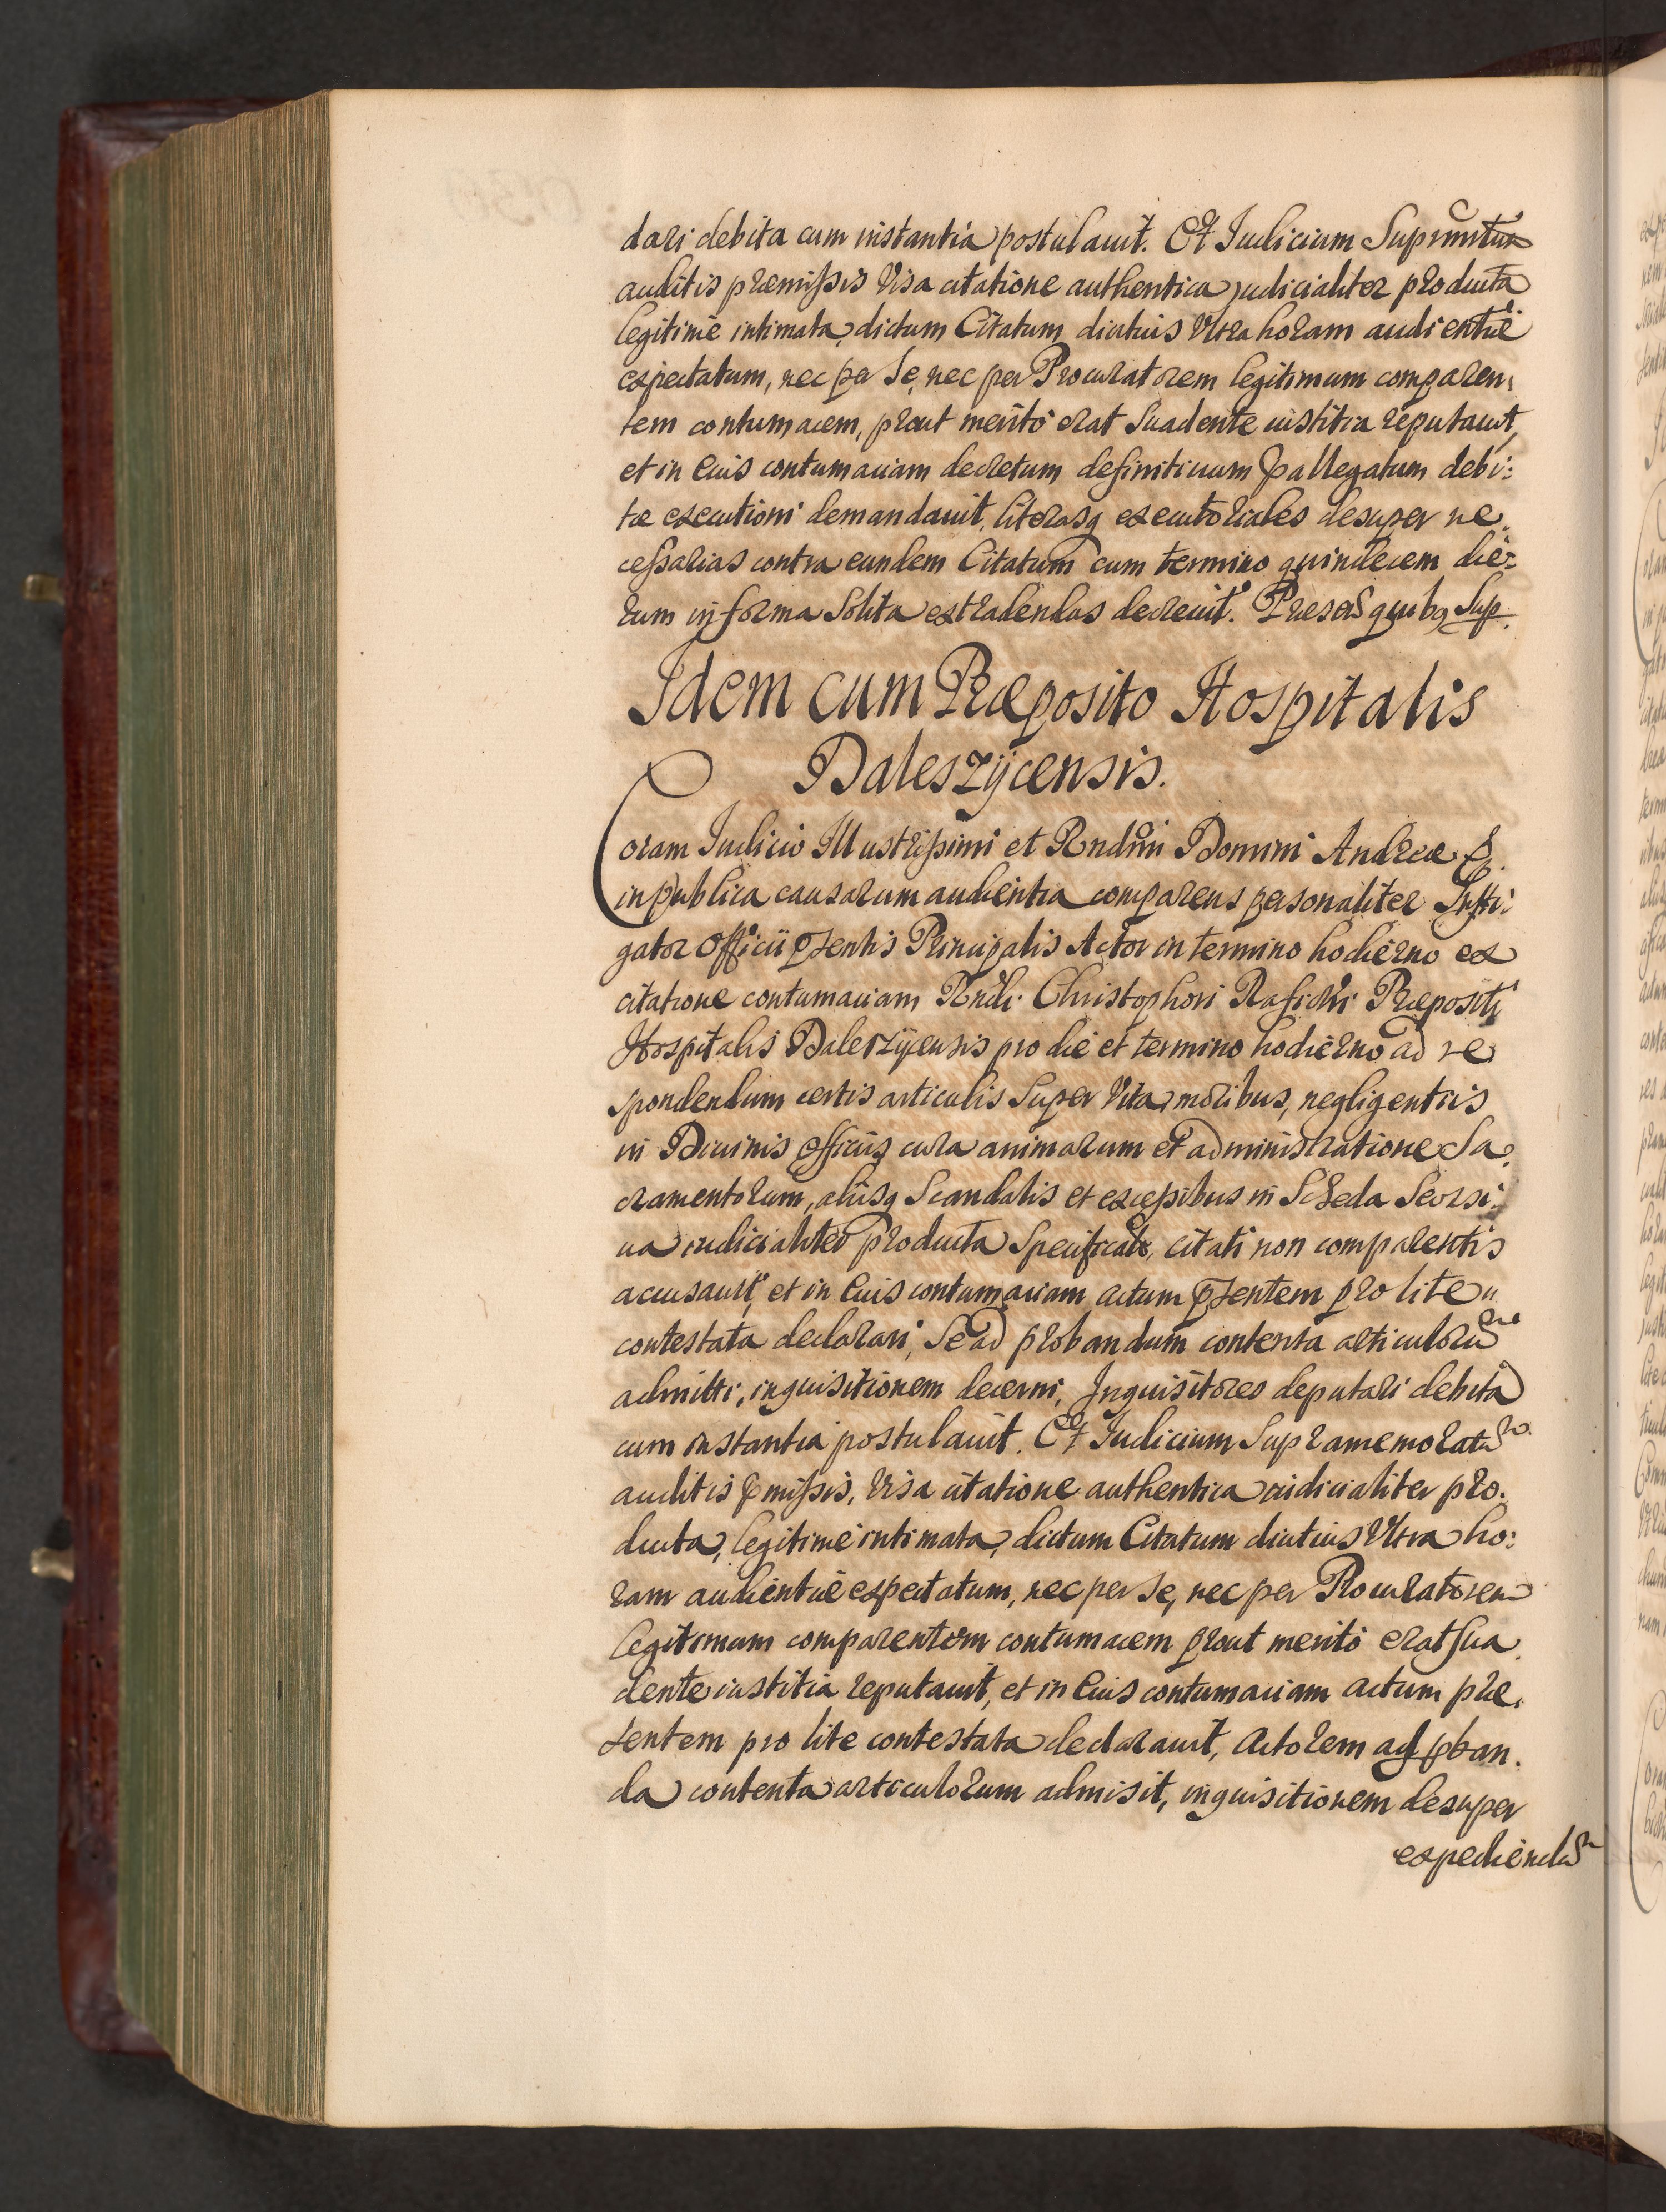 dari debita cum instantia postulauit. Et Iudicium Supr
auditis præmißis Visa citatione authentica judicialiter producta
legitimè intimata, dictum Citatum diutius Vltra horam audientiæ
expectatum, nec per Se, nec per Procuratorem legitimum comparen:
tem contumacem, prout meritò erat Suadente iustitia reputauit,
et in Eius contumaciam decretum definitiuum allegatum debi:
tæ executioni demandauit, literasq executoriales desuper ne.
ceßarias contra eundem Citatum cum termino quindecem die:
rum in forma Solita extradendas decreuit. Præsent quibq Sup.
Idem cum Præposito Hospitalis
Daleszÿcensis.
Coram Iudicio Illustrißimi et Rndmi Domini Andreæ &.
in publica causarum audientia comparens personaliter Insti:
gator Officii pSentis Principalis Actor in termino hodierno ex
citatione contumaciam Rndi Christophori Præpositi
Hospitalis Daleszÿcensis pro die et termino hodierno ad re
spondendum certis articulis Super Vita, moribus, negligentiis
in Diuinis officiis cura animarum et administratione Sa.
cramentorum, aliisq Scandalis et exceßibus in Scheda Seorsi:
ua iudicialiter producta Specificatis, citati non comparentis
accusauit, et in Eius contumaciam actum pSentem pro lite
contestata declarari, Se ad probandum contenta articulorum
admitti, inquisitionem decerni, Inquisitores deputari debita
cum instantia postulauit. Et Iudicium Supramemoratum
auditis pmißis, Visa citatione authentica iudicialiter pro.
ducta, legitimè intimata, dictum Citatum diutius Vltra ho:
ram audientiæ expectatum, nec per Se, nec per Procuratorem
legitimum comparentem contumacem prout meritò erat Sua.
dente iustitia reputauit, et in Eius contumaciam actum præ.
Sentem pro lite contestata declarauit, Actorem ad pban.
da contenta articulorum admisit, inquisitionem desuper
expediendam